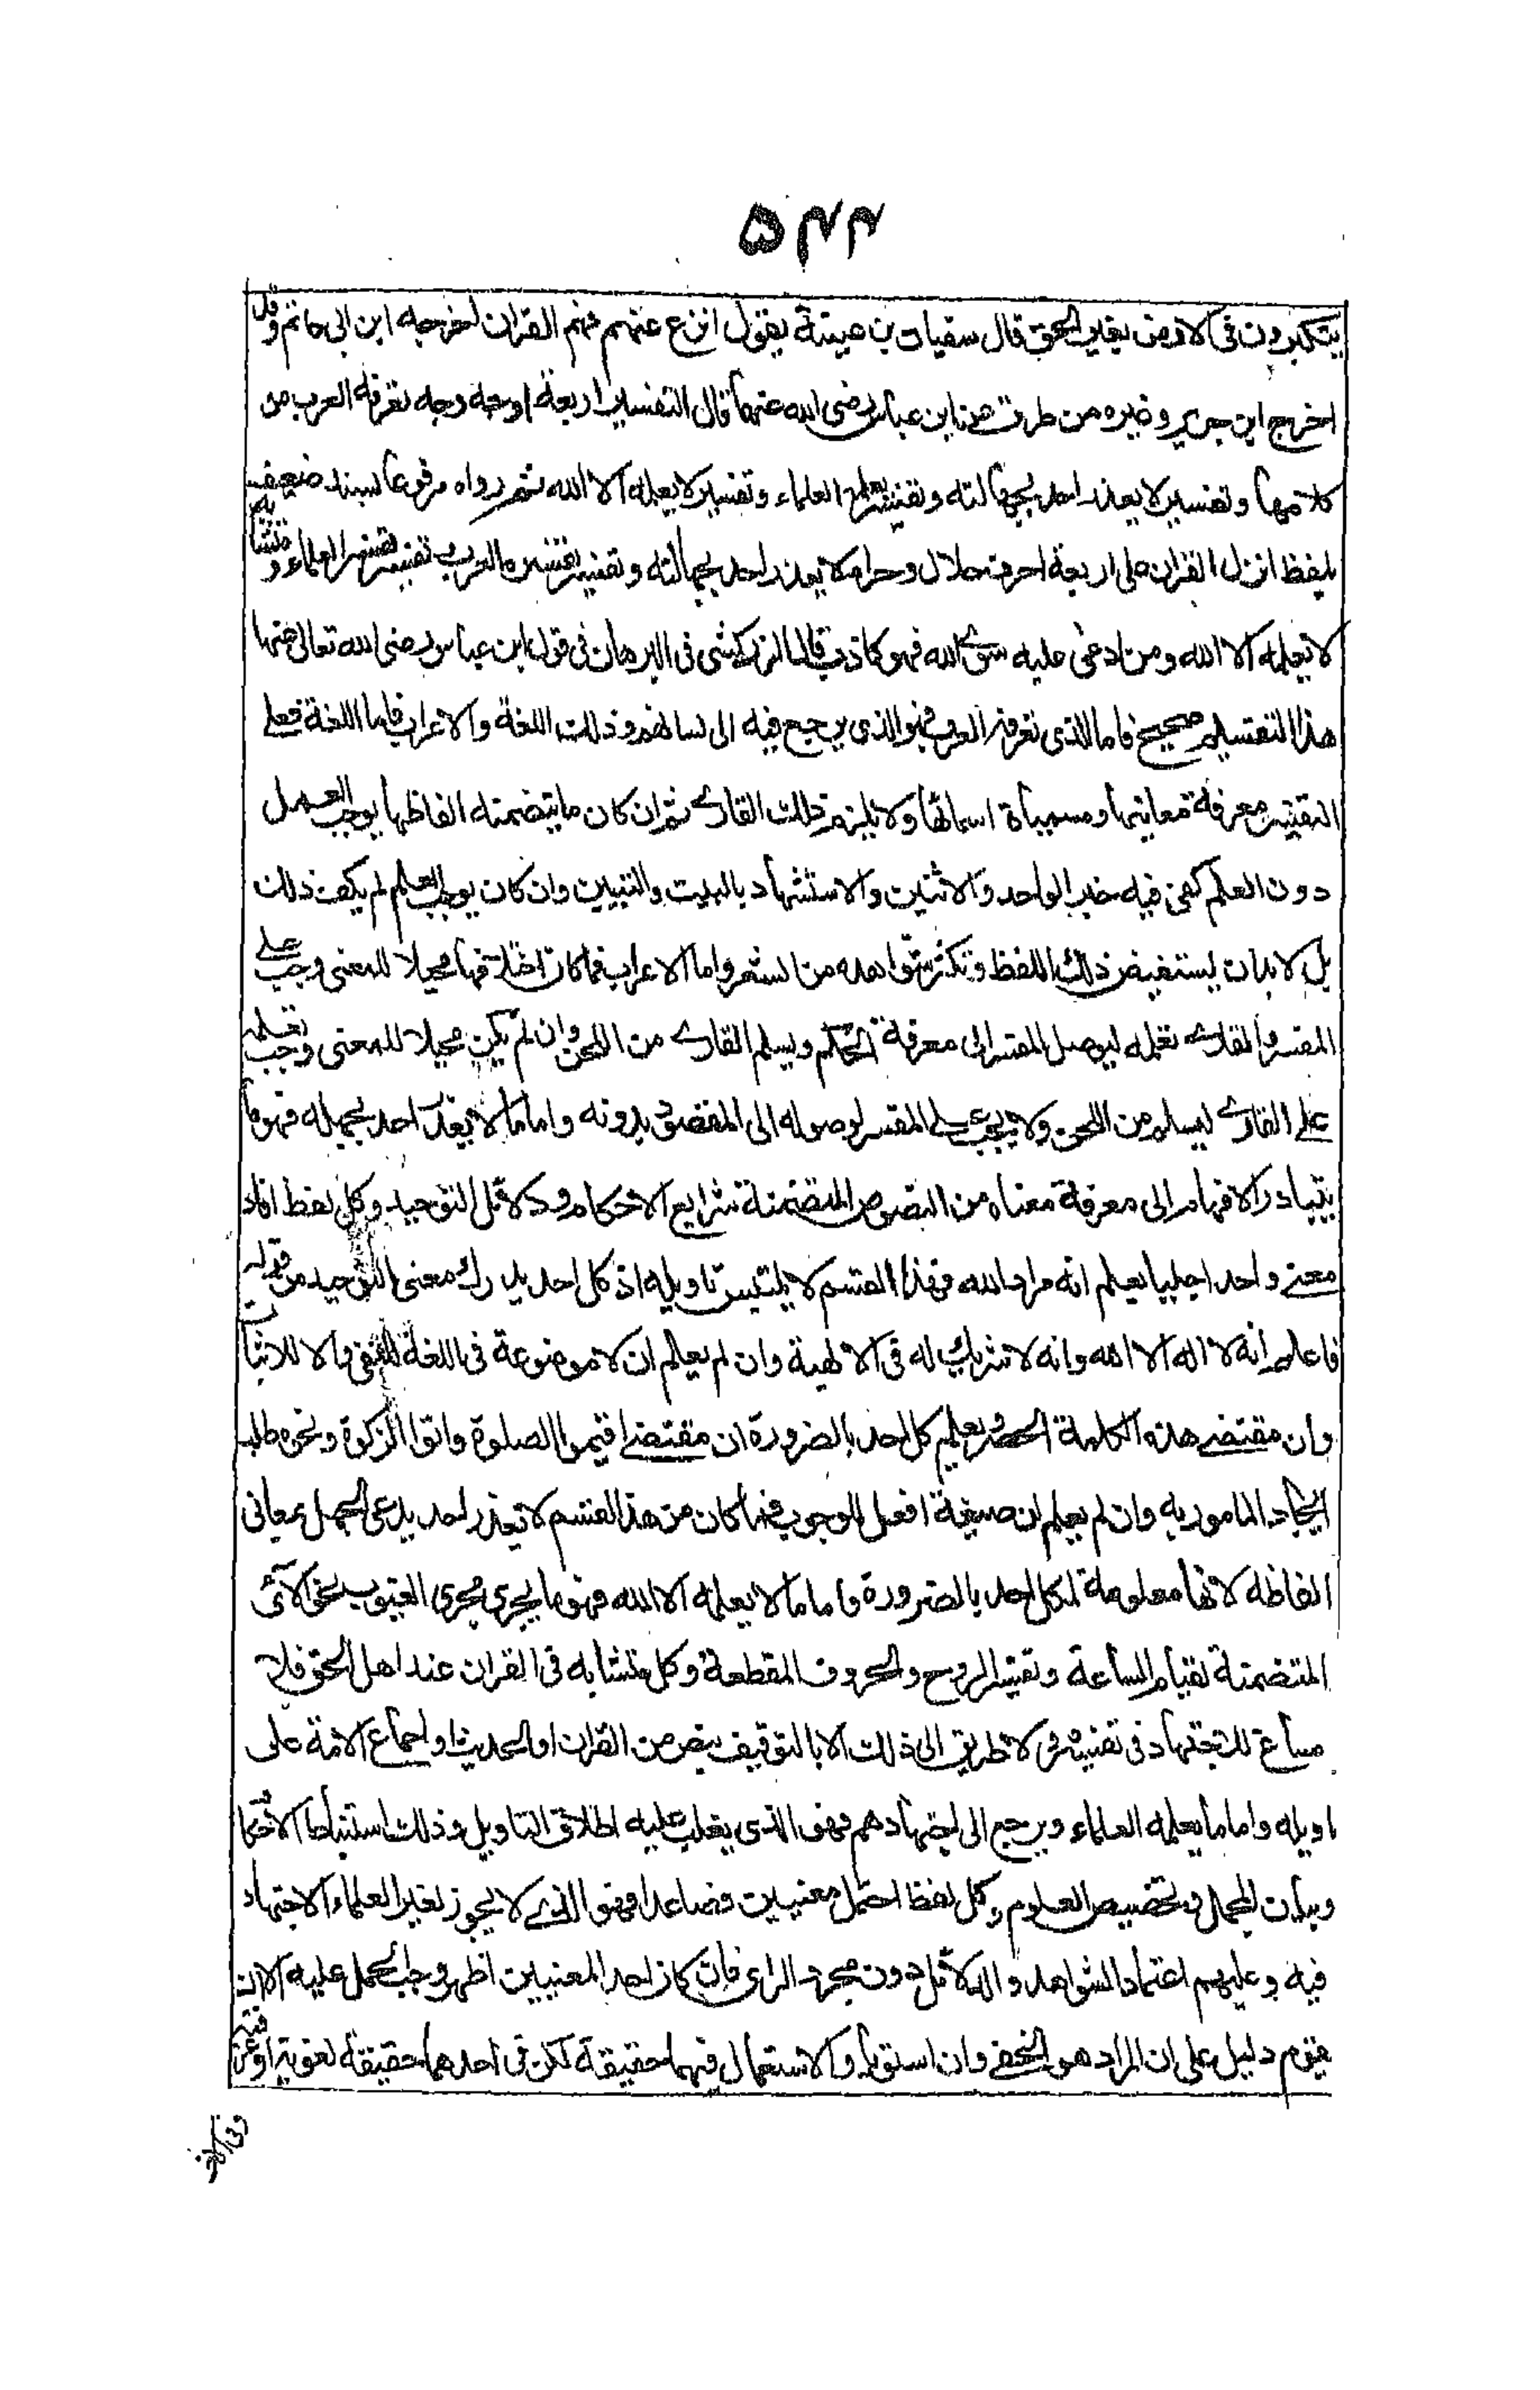 ۵۴۴
يتكبرون فى الارض بغير الحق قال سفيان بن عيينة يقول انزع عنهم فهم القران اخرجه ابن ابى حاتم وقد
اخرج ابن جرير وغيره من طرق عن ابن عباس رضى الله عنهما قال التفسير اربعة اوجه وجه تعرفه العرب من
كلامها وتفسير لا يعذر احد بجهالته وتفسير يعلمه العلماء وتفسير لا يعلمه الا الله ثم رواه مرفوعا بسند ضعيف
بلفظ انزل القران على اربعة احرف حلال وحرام لا يعذر احد بجهالته وتفسير تفسره العرب وتفسير تفسره العلماء ومتشابه
لا يعلمه الا الله ومن ادعى علمه سوى الله فهو كاذب قال الزركشى فى البرهان فى قول ابن عباس رضى الله تعالى عنهما
هذا التقسيم صحيح فاما الذى تعرفه العرب فهو الذى يرجع فيه الى لسانهم وذلك اللغة والاعراب فاما اللغة فعلى
المفسر معرفة معانيها ومسمياة اسمائها ولا يلزم ذلك القارى ثم ان كان ما يتضمنه الفاظها يوجب العمل
دون العلم كفى فيه خبر الواحد والاثنين والاستشهاد بالبيت والبيتين وان كان يوجب العلم لم يكف ذلك
بل لا بد ان يستفيض ذلك اللفظ وتكثر شواهده من الشعر واما الاعراب فما كان اختلافها محيلا للمعنى وجب على
المفسر والقارى تعلمه ليوصل المفسر الى معرفة الحكم ويسلم القارى من اللحن وان لم يكن محيلا للمعنى وجب تعلمه
على القارى ليسلم من اللحن ولا يجب على المفسر لوصوله الى المقصود بدونه واما ما لا يعذر احد بجهله فهو ما
يتبادر الافهام الى معرفة معناه من النصوص المتضمنة شرايع الاحكام ودلائل التوحيد وكل لفظ افاد
معنى واحدا جليا يعلم انه مراد الله فهذا القسم لا يلتبس تاويله اذ كل احد يدرك معنى التوحيد من قوله
فاعلم انه لا اله الا الله وانه لا شريك له فى الالهية وان لم يعلم ان لا موضوعة فى اللغة للنفى والا للاثبات
وان مقتضى هذه الكلمة الحصر ويعلم كل احد بالضرورة ان مقتضى اقيموا الصلوة واتوا الزكوة ونحوه طلب
ايجاد المامور به وان لم يعلم ان صيغة افعل للوجوب فما كان من هذا القسم لا يعذر احد يدعى الجهل بمعانى
الفاظه لانها معلومة لكل احد بالضرورة واما ما لا يعلمه الا الله فهو ما يجرى مجرى الغيوب نحو الآى
المتضمنة لقيام الساعة وتفسير الروح والحروف المقطعة وكل متشابه فى القران عند اهل الحق فلا
مساغ للاجتهاد فى تفسيره ولا طريق الى ذلك الا بالتوقيف بنص من القران او الحديث او اجماع الامة على
تاويله واما ما يعلمه العلماء ويرجع الى اجتهادهم فهو الذى يغلب عليه اطلاق التاويل وذلك استنباط الاحكام
وبيان المجمل وتخصيص العلوم وكل لفظ احتمل معنيين فصاعدا فهو الذى لا يجوز لغير العلماء الاجتهاد
فيه وعليهم اعتماد الشواهد والدلائل دون مجرد الراى فان كان احد المعنيين اظهر وجب الحمل عليه الا ان
يقوم دليل على ان المراد هو الخفى وان استويا والاستعمال فيهما حقيقة لكن فى احدهما حقيقة لغوية او عرفية